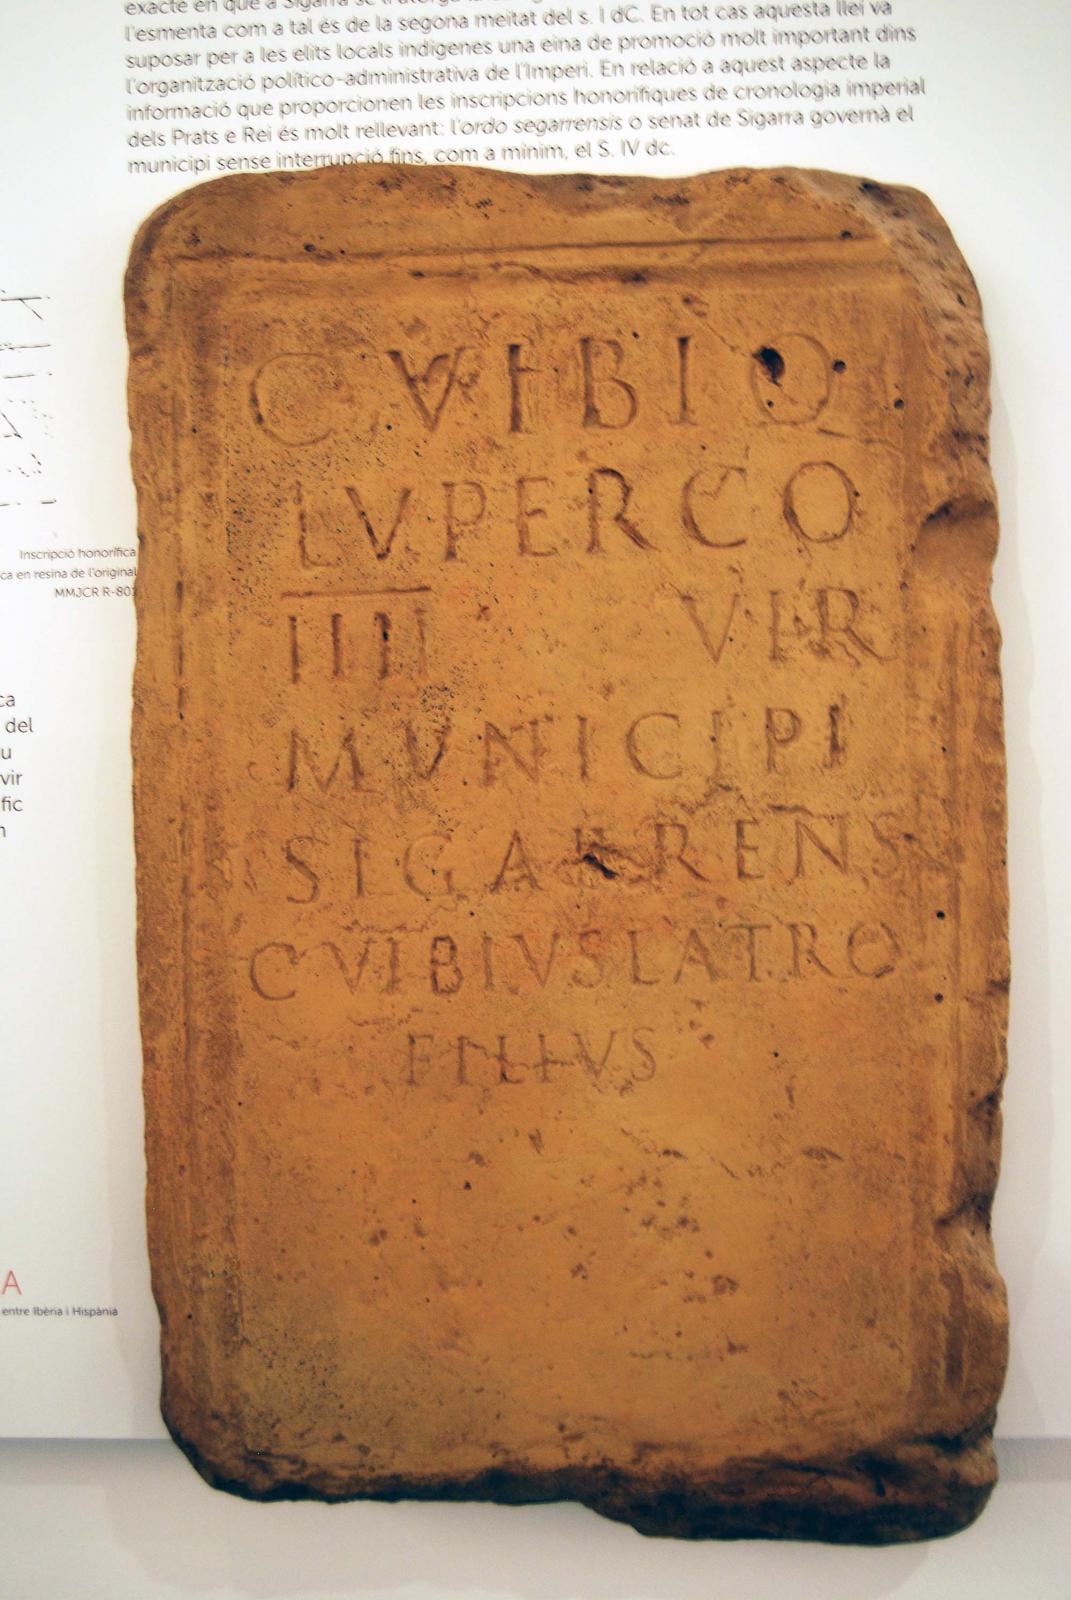 exacte en què a Sigarra se
l'esmenta com a tal és de la segona meitat del s. I dC. En tot cas aquesta llei va
suposar per a les elits locals indígenes una eina de promoció molt important dins
l'organització político-administrativa de l'Imperi. En relació a aquest aspecte la
informació que proporcionen les inscripcions honorífiques de cronologia imperial
dels Prats e Rei és molt rellevant: l'ordo segarrensis o senat de Sigarra governà el
municipi sense interrupció fins, com a mínim, el S. IV dc.
C VIBIO
LVPERCO
IIII VIR
MVNICIPI
SIGARRENS
C VIBIVS LATRO
FILIVS
Inscripció honorífica
ca en resina de l'original
MMJCR R-801
ca
del
u
vir
fic
A
entre Ibèria i Hispània